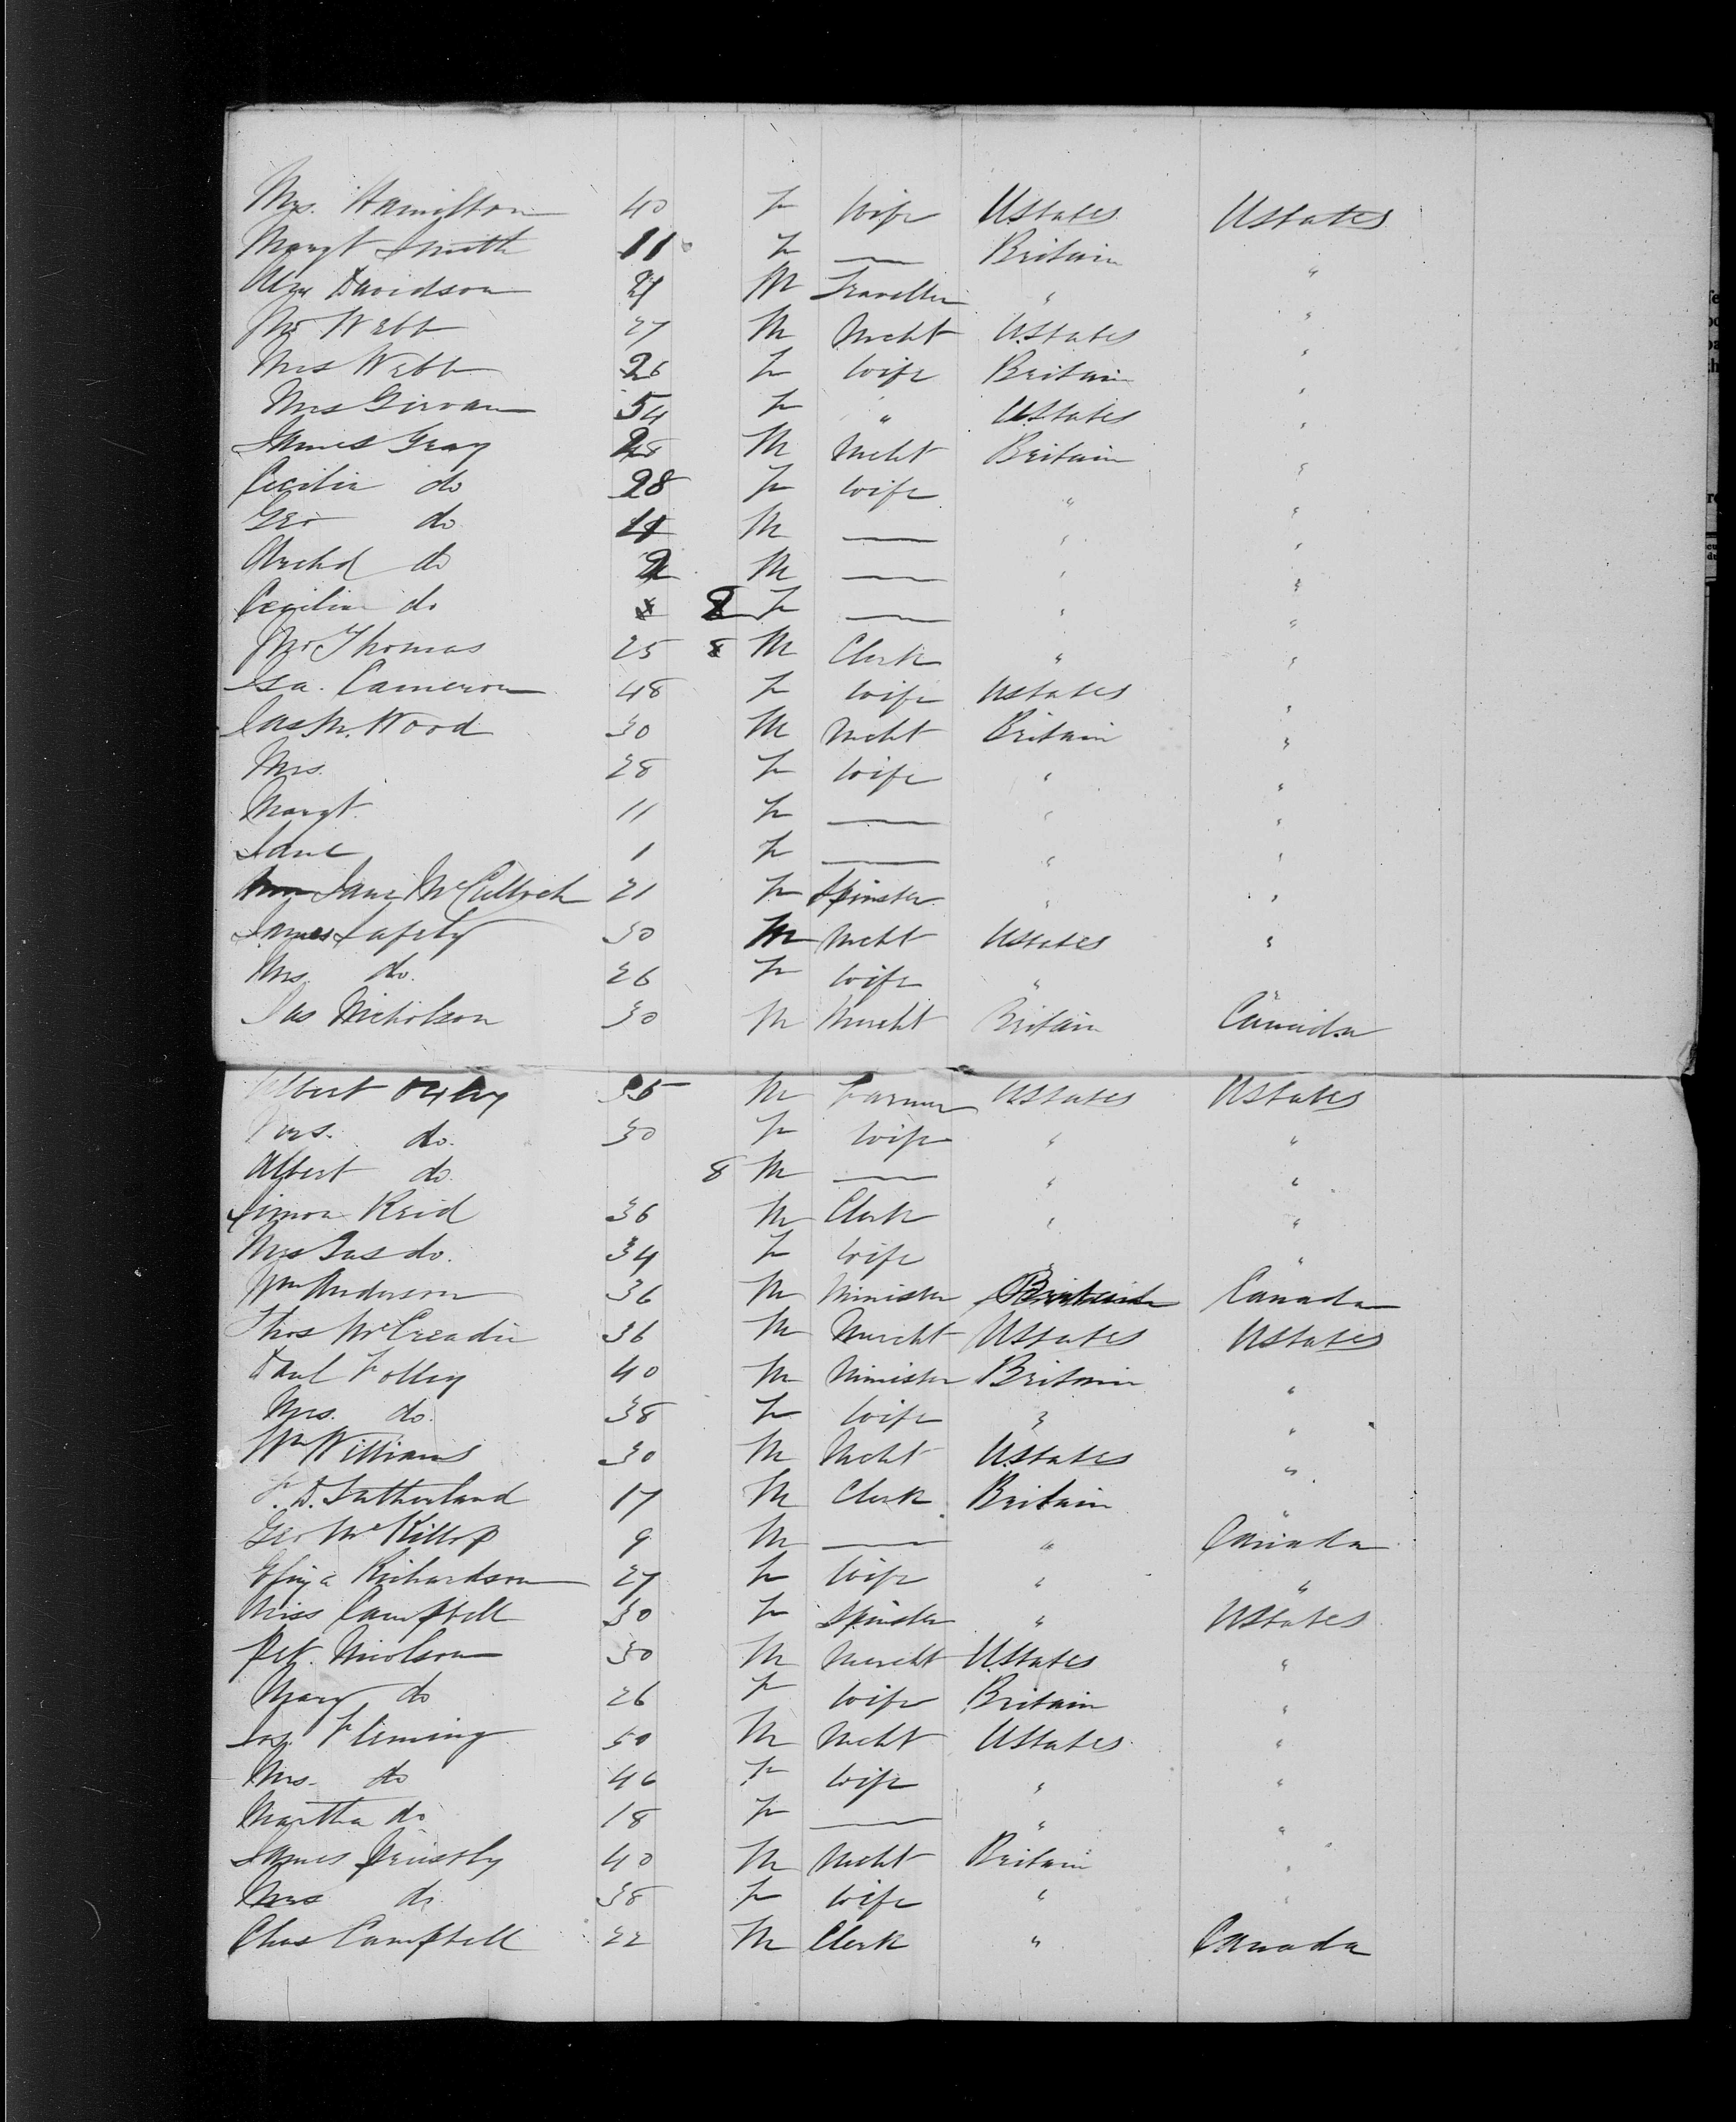 Mrs. Hamilton 40 F Wife UStates UStates
Margt Smith 11 F — Britain "
Alex Davidson 21 M Traveller " "
Jno Webb 27 M Mcht UStates "
Mrs Webb 26 F Wife Britain "
Mrs Girvan 54 F " UStates "
James Gray 28 M Mcht Britain "
Cecilia do 28 F Wife " "
Geo do 11 M — " "
Archd do 2 M — " "
Cecilia do 8 F — " "
Jno Thomas 25 M Clerk " "
Isa. Cameron 48 F Wife UStates "
Jas M. Wood 30 M Mcht Britain "
Mrs. 28 F Wife " "
Margt. 11 F — " "
Jane 1 F — " "
Jane McCulloch 21 F Spinster " "
James Lafety 30 M Mcht UStates "
Mrs. do. 26 F Wife " "
Jas Nicholson 30 M Mercht Britain Canada
Albert 35 M Farmer UStates UStates
Mrs. do. 30 F Wife " "
Albert do. 8 M — " "
Simon Reid 36 M Clerk " "
Mrs Jas do. 34 F Wife " "
Wm Anderson 36 M Minister Canada
Thos McCreadie 36 M Mercht UStates UStates
Paul Folley 40 M Minister Britain "
Mrs. do. 38 F Wife " "
Wm Williams 30 M Mcht UStates "
F. D. Sutherland 17 M Clerk Britain "
Geo McKillop 9 M — " Canada
Richardson 27 F Wife " "
Miss Campbell 30 F Spinster " UStates
Pet. Nicolson 30 M Mercht UStates "
Mary do 26 F Wife Britain "
Jos. Fleming 50 M Mcht UStates "
Mrs. do 46 F Wife " "
Martha do 18 F — " "
James Priestly 40 M Mcht Britain "
Mrs do 38 F Wife " "
Chas Campbell 22 M Clerk " Canada